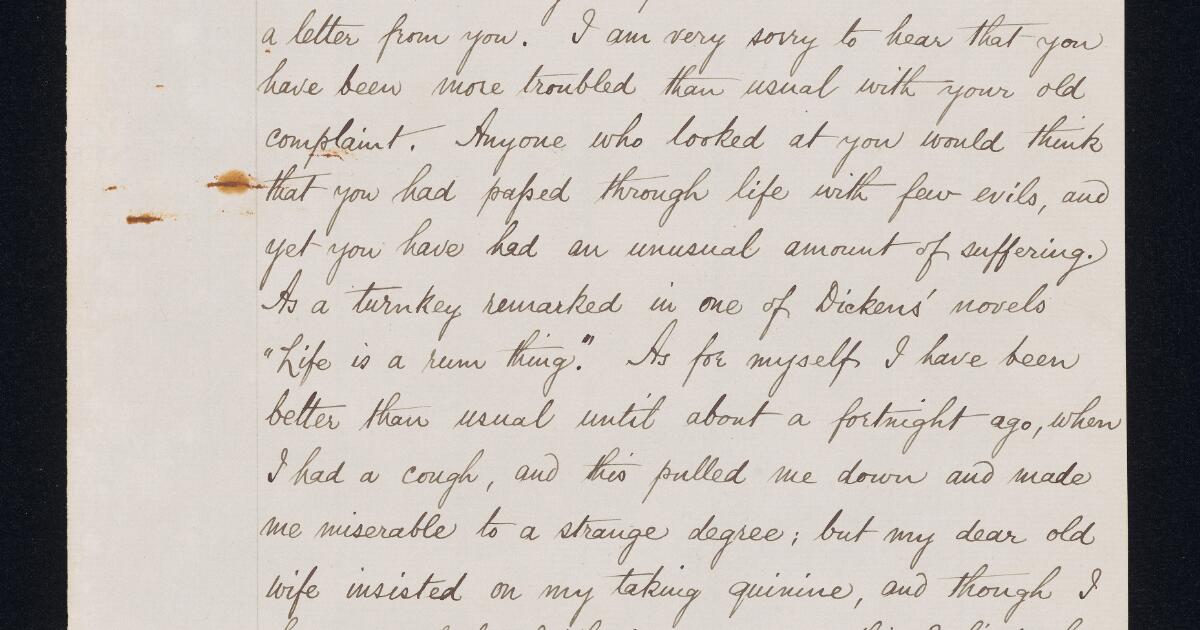 a letter from you. I am very sorry to hear that you
have been more troubled than usual with your old
complaint. Anyone who looked at you would think
that you had paſsed through life with few evils, and
yet you have had an unusual amount of suffering.
As a turnkey remarked in one of Dickens' novels
"Life is a rum thing." As for myself I have been
better than usual until about a fortnight ago, when
I had a cough, and this pulled me down and made
me miserable to a strange degree; but my dear old
wife insisted on my taking quinine, and though I